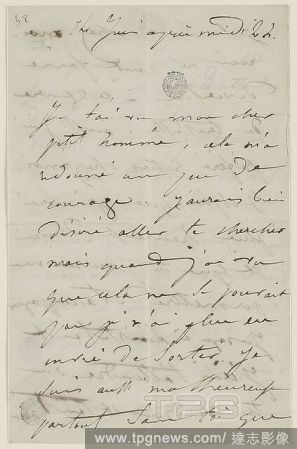 48
14 Juin après midi 2 h.
Je t'ai vu mon cher
p'tit homme, cela m'a
redonné un peu de
courage... j'aurais bien
désiré aller te chercher
mais quand j'ai vu
que cela ne se pouvait
pas je n'ai plus eu
envie de sortir. Je
suis aussi malheureuse
partout sans toi que
TPG
www.tpgnews.com / 達志影像